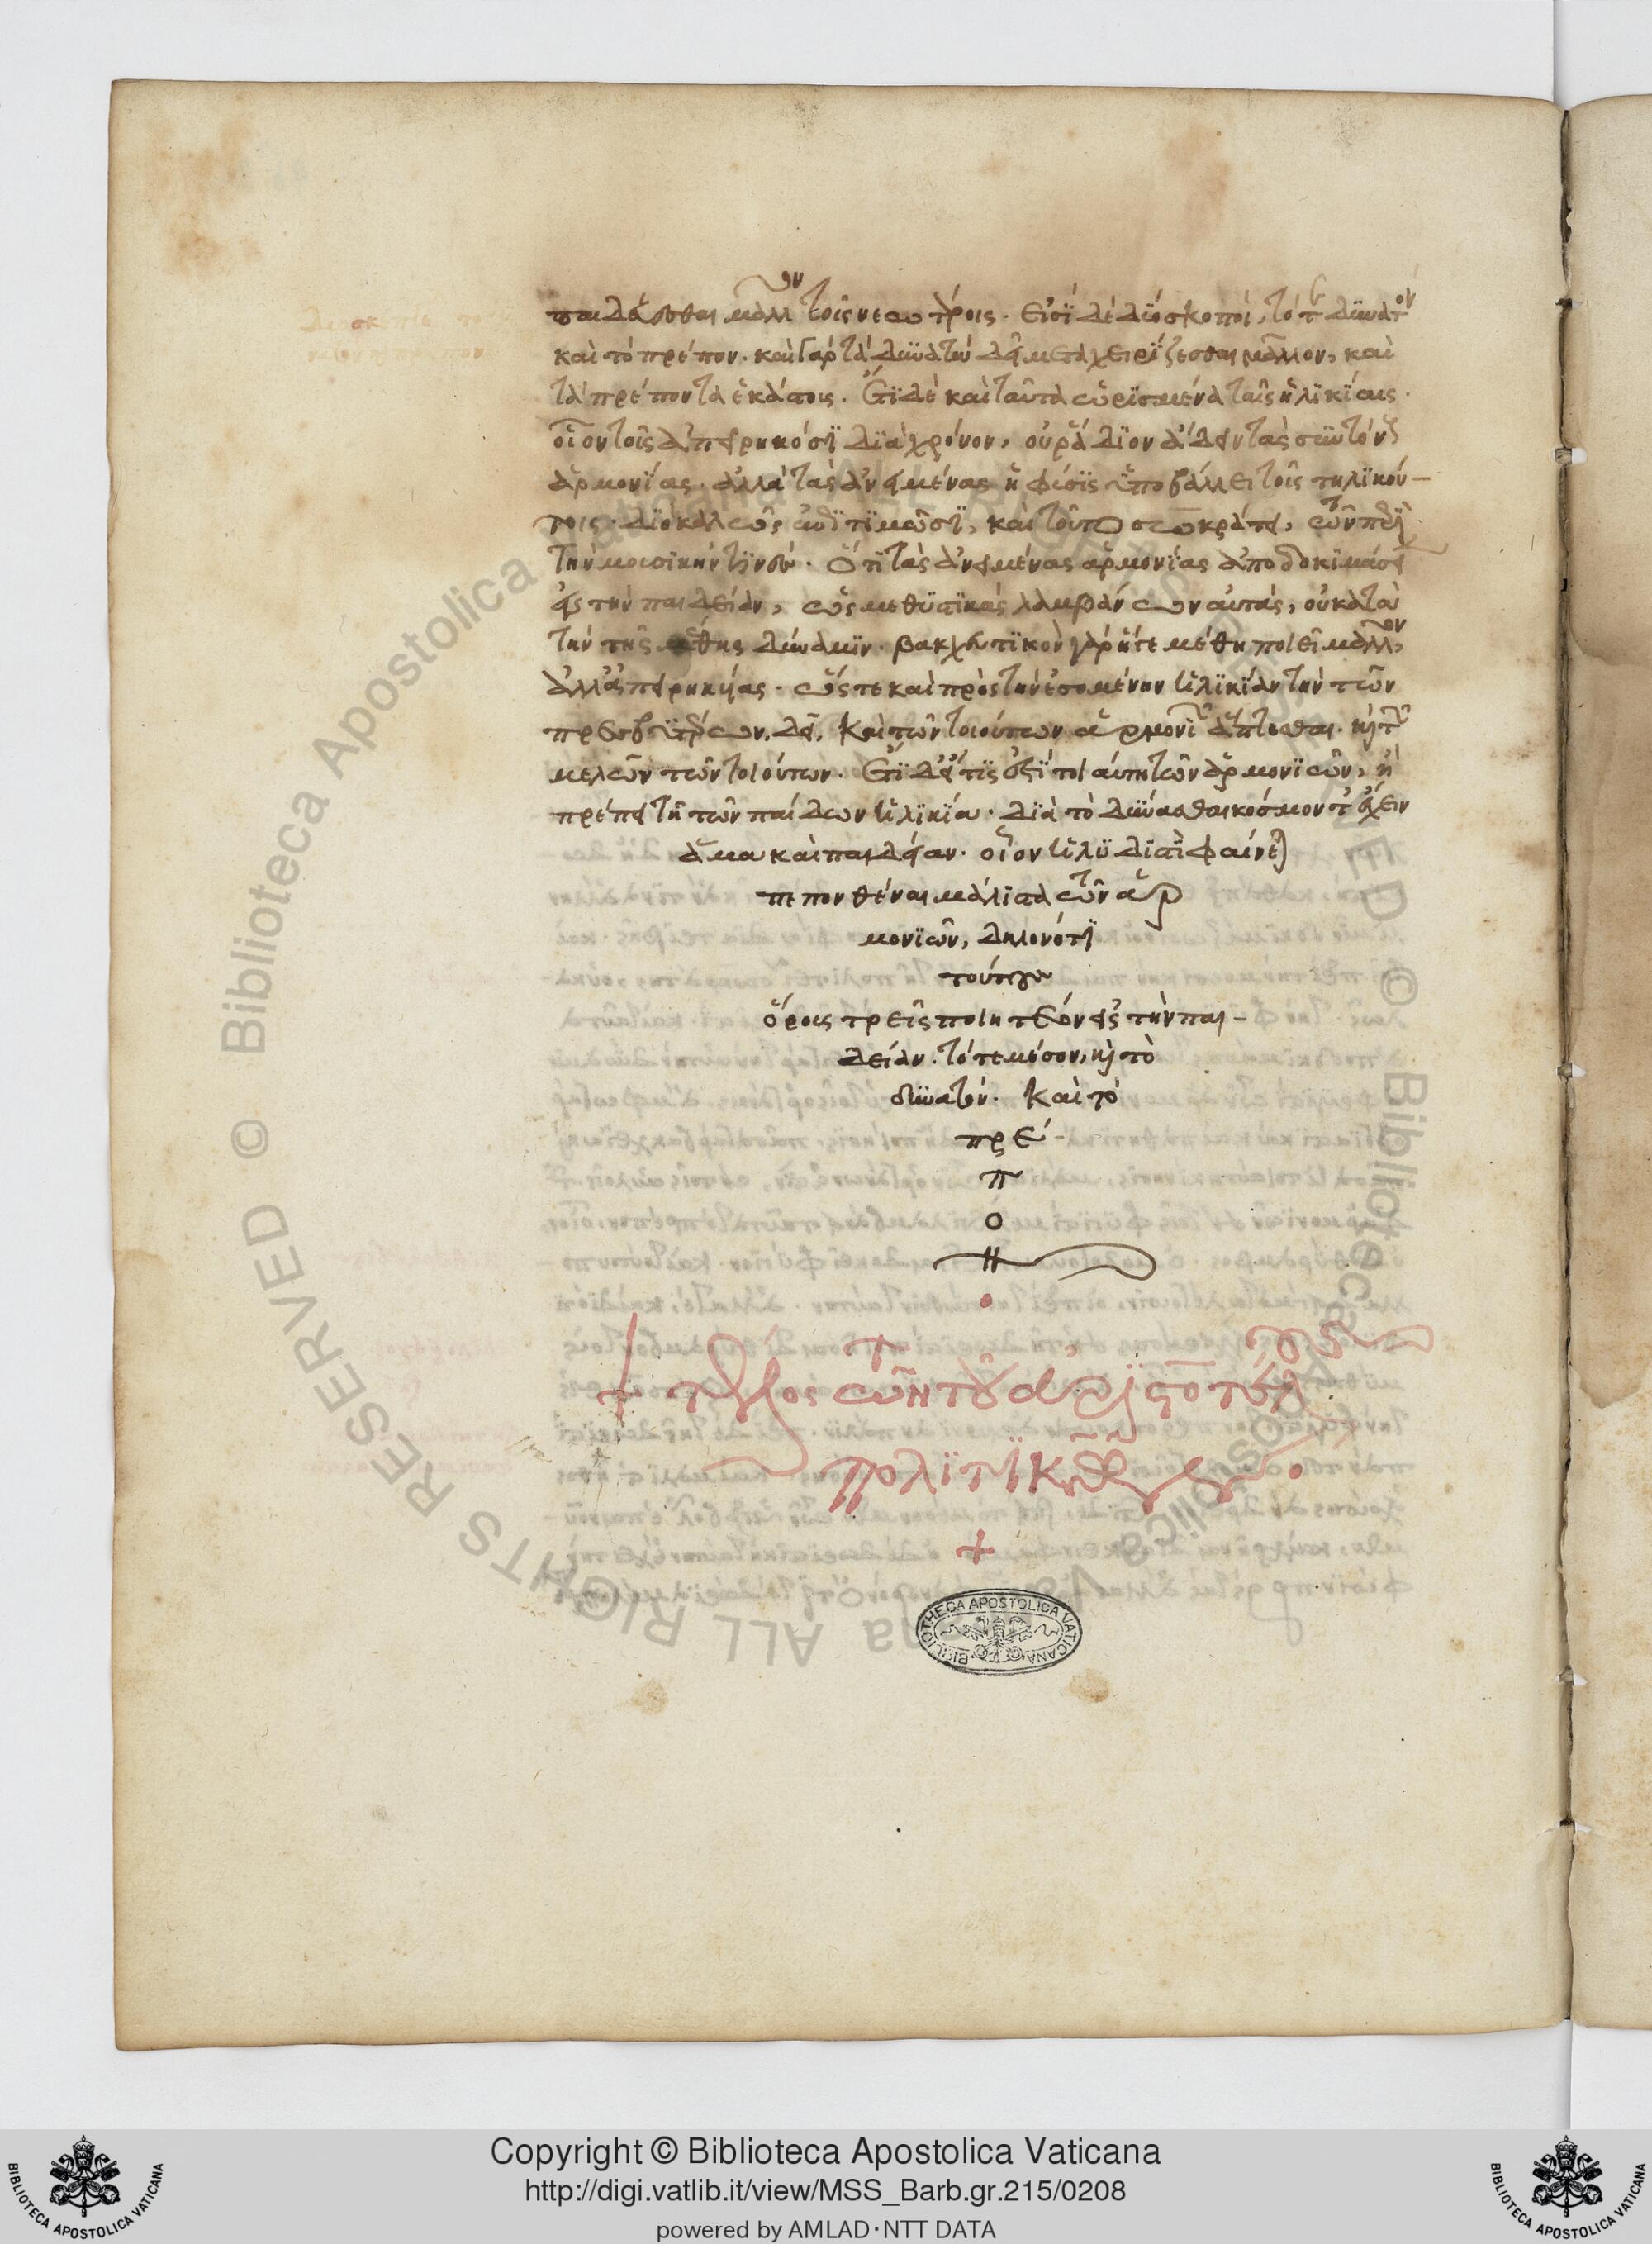 παιδεύεσθαι μᾶλλον τοῖς νεωτέροις. εἰσὶ δὲ δύο σκοποί, τό τε δυνατὸν
καὶ τὸ πρέπον. καὶ γὰρ τὰ δυνατὰ δεῖ μεταχειρίζεσθαι μᾶλλον, καὶ
τὰ πρέποντα ἑκάστοις. ἔστι δὲ καὶ ταῦτα ὡρισμένα ταῖς ἡλικίαις.
οἷον τοῖς ἀπειρηκόσι διὰ χρόνον, οὐ ῥάδιον ᾄδειν τὰς συντόνους
ἁρμονίας. ἀλλὰ τὰς ἀνειμένας ἡ φύσις ὑποβάλλει τοῖς τηλικού-
τοις. διὸ καλῶς ἐπιτιμῶσι, καὶ τοῦτο σωκράτει, τῶν περὶ
τὴν μουσικήν τινες. ὅτι τὰς ἀνειμένας ἁρμονίας ἀποδοκιμάσει
εἰς τὴν παιδείαν, ὡς μεθυστικὰς λαμβάνων αὐτάς, οὐ κατὰ
τὴν τῆς μέθης δύναμιν. βακχευτικὸν γὰρ ἥ τε μέθη ποιεῖ μᾶλλον,
ἀλλ' ἀπειρηκυίας. ὥστε καὶ πρὸς τὴν ἐσομένην ἡλικίαν τὴν τῶν
πρεσβυτέρων. δεῖ. καὶ τῶν τοιούτων ἁρμονιῶν ἅπτεσθαι. καὶ τῶν
μελῶν τῶν τοιούτων. ἔτι δ' εἴ τις ἐστὶ τοιαύτη τῶν ἁρμονιῶν, ἣ
πρέπει τῇ τῶν παίδων ἡλικίᾳ. διὰ τὸ δύνασθαι κόσμον τ' ἔχειν
ἅμα καὶ παιδείαν. οἷον ἡ λυδιστὶ φαίνεται
πεπονθέναι μάλιστα τῶν ἁρ
μονιῶν, δηλονότι
τούτους
ὅρους τρεῖς ποιητέον εἰς τὴν παι-
δείαν. τό τε μέσον, καὶ τὸ
δυνατόν. καὶ τὸ
πρέ-
π
ο
ν
τέλος τῶν τοῦ ἀριστοτέλους
πολιτικῶν
+
BIBLIOTHECA APOSTOLICA VATICANA
© Biblioteca Apostolica Vaticana ALL RIGHTS RESERVED
Copyright © Biblioteca Apostolica Vaticana
http://digi.vatlib.it/view/MSS_Barb.gr.215/0208
powered by AMLAD·NTT DATA
BIBLIOTECA APOSTOLICA VATICANA
BIBLIOTECA APOSTOLICA VATICANA